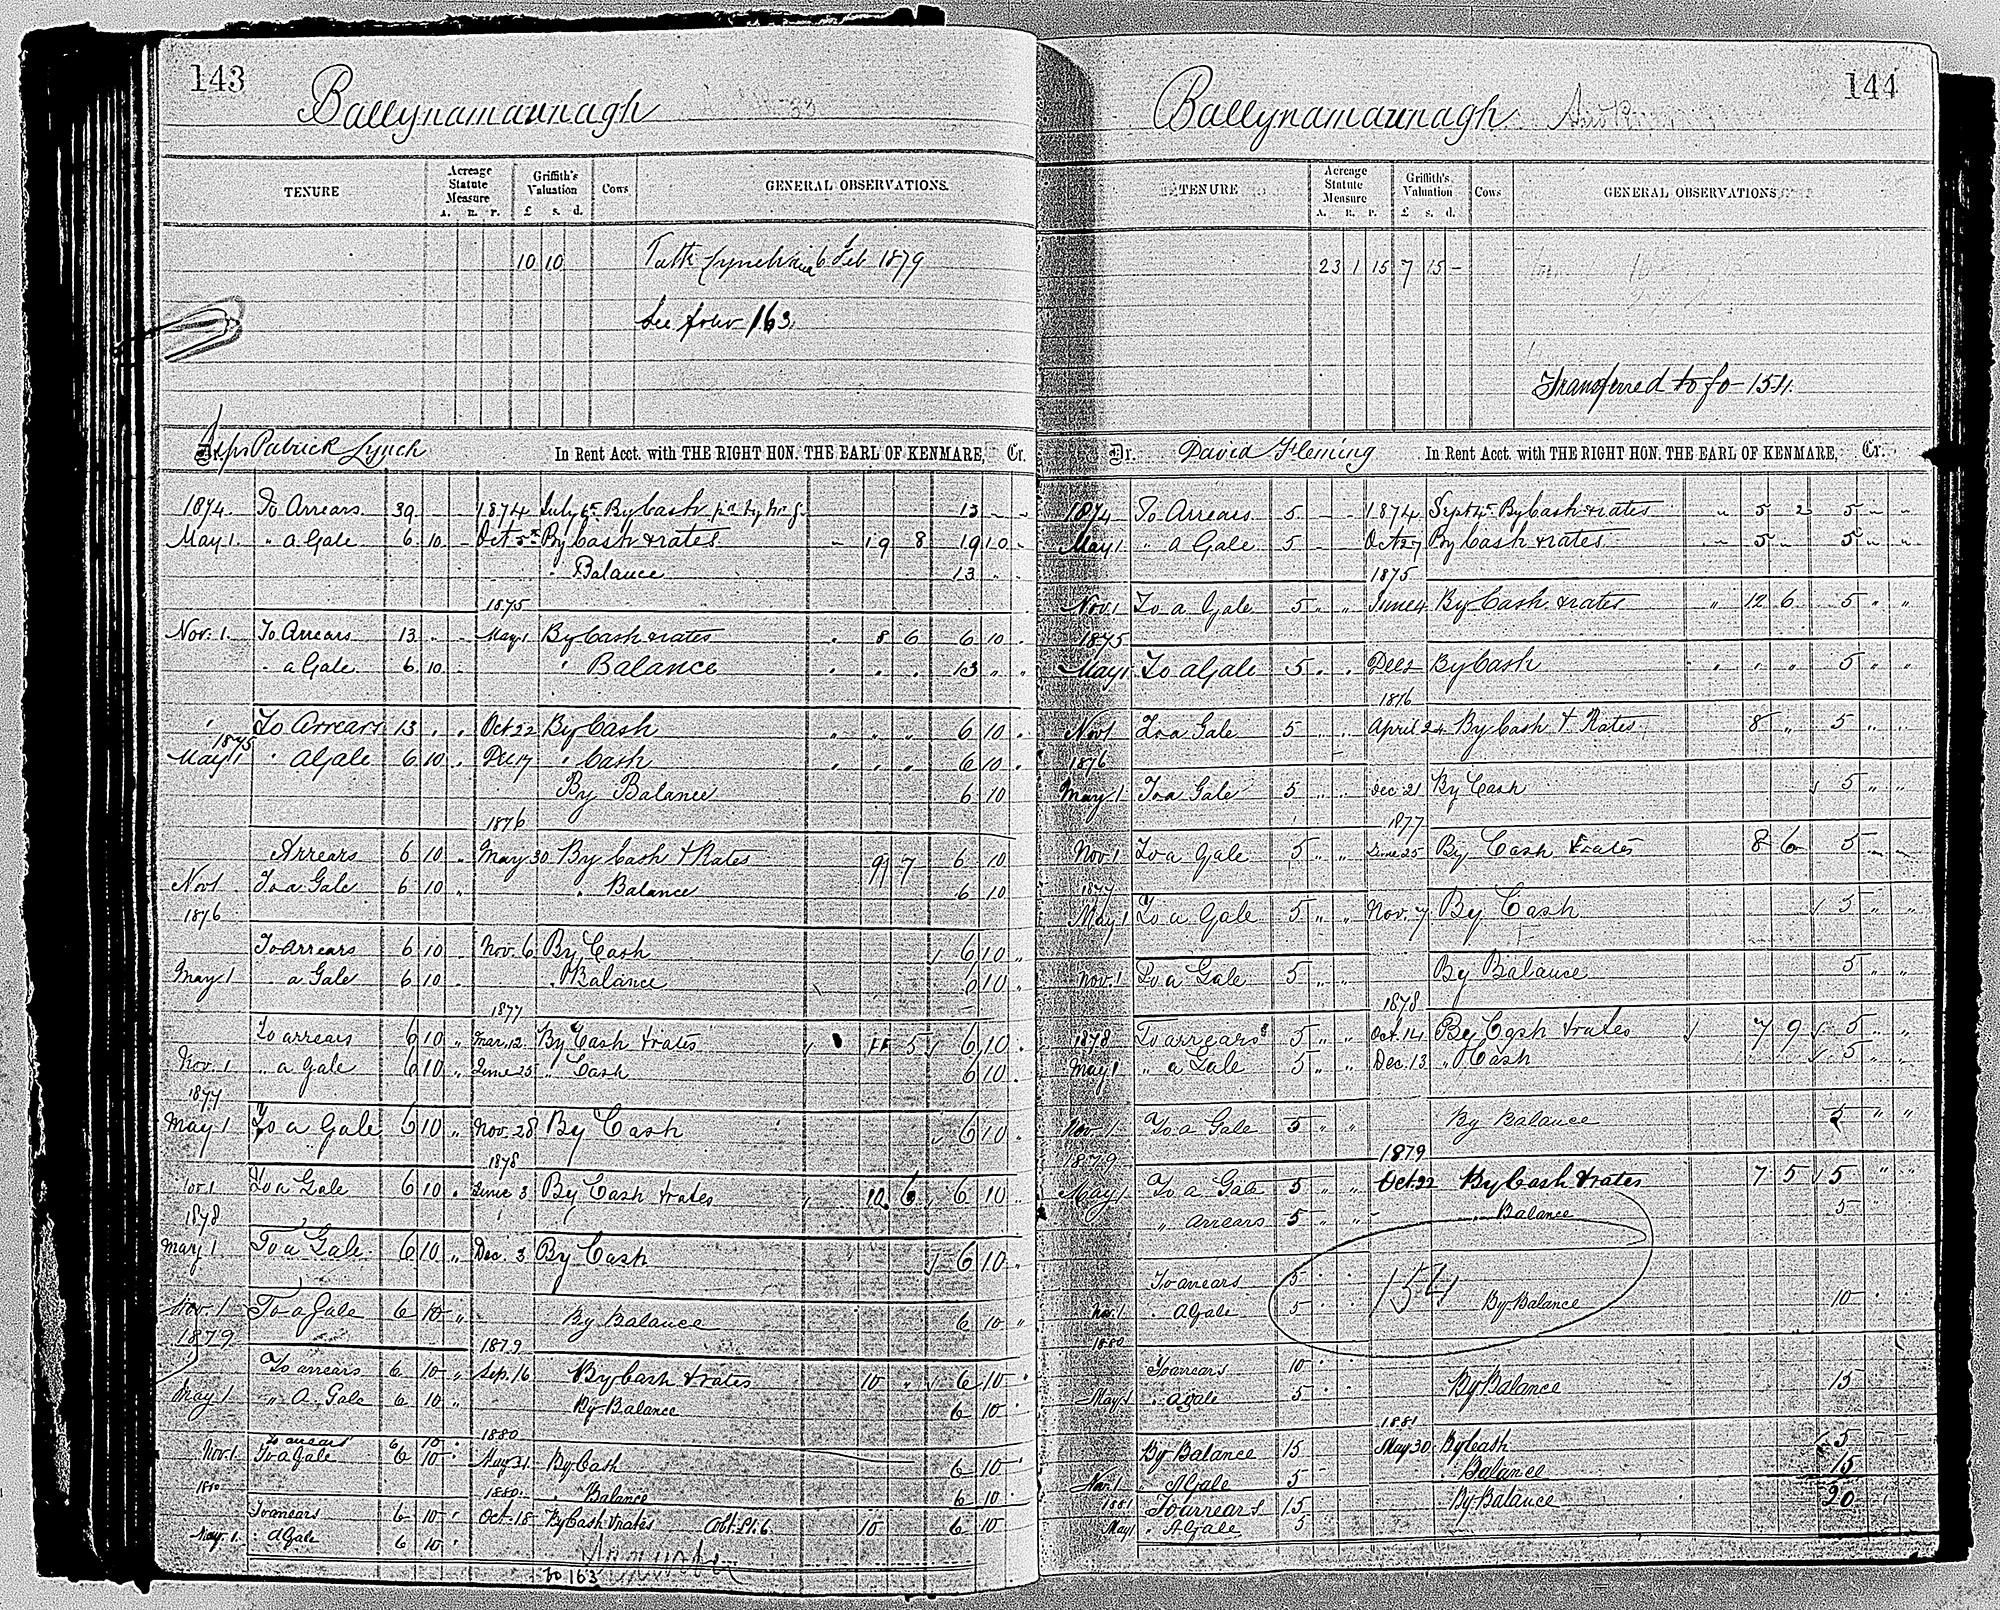 143
Ballynamaunagh
TENURE
Acreage Statute Measure
A. R. P.
Griffith's Valuation
£ s. d.
Cows
GENERAL OBSERVATIONS.
10 10
6 Feb 1879
See folio 163
Reps Patrick Lynch In Rent Acct. with THE RIGHT HON. THE EARL OF KENMARE, Cr.
1874. To Arrears 39 - - 1874 July 6th By Cash 13 - -
May 1. " a Gale 6 10 - Oct 5th By Cash & rates - 19 8 19 10 -
" Balance 13 " "
1875
Nov. 1. To Arrears 13 - - May 1 By Cash & rates " 8 6 6 10 "
" a Gale 6 10 - " Balance " " " 13 " "
" To Arrears 13 " " Oct 22 By Cash " " " 6 10 "
1875
May 1 " A Gale 6 10 " Dec 17 " Cash " " " 6 10 "
By Balance 6 10
1876
Arrears 6 10 " May 30 By Cash & Rates 9 7 6 10
Nov 1 To a Gale 6 10 " " Balance 6 10
1876
To Arrears 6 10 " Nov. 6 By Cash 6 10 "
May 1 " a Gale 6 10 " " Balance 6 10 "
1877
To arrears 6 10 " Mar. 12 By Cash & rates " 11 5 6 10 "
Nov. 1 " a Gale 6 10 " June 25 " Cash 6 10 "
1877
May 1 To a Gale 6 10 " Nov. 28 By Cash 6 10 "
1878
Nov 1 To a Gale 6 10 " June 3 By Cash & rates " 12 6 6 10 "
1878
May 1 To a Gale 6 10 " Dec. 3 By Cash 6 10 "
Nov. 1 To a Gale 6 10 " By Balance 6 10 "
1879
1879
To arrears 6 10 " Sep. 16 By Cash & rates 10 " 6 10 "
May 1 " A Gale 6 10 " By Balance 6 10 "
1880
To arrears 6 10 "
Nov. 1 To a Gale 6 10 " May 31 By Cash 6 10 "
1880 1880. " Balance 6 10 "
To arrears 6 10 " Oct. 18 By Cash & rates 10 6 10
May. 1. " A Gale 6 10 "
to 163
144
Ballynamaunagh
TENURE
Acreage Statute Measure
A. R. P.
Griffith's Valuation
£ s. d.
Cows
GENERAL OBSERVATIONS.
23 1 15 7 15 -
Transferred to fo 154.
Dr. David Fleming In Rent Acct. with THE RIGHT HON. THE EARL OF KENMARE, Cr.
1874 To Arrears 5 - - 1874 Sept 4th By Cash & rates " 5 2 5 " "
May 1 " a Gale 5 - - Oct 27 By Cash & rates " 5 " 5 " "
1875
Nov. 1 To a Gale 5 " " June 4 By Cash & rates " 12 6 5 " "
1875
May 1 To a Gale 5 " " Dec 2 By Cash " " " 5 " "
1876
Nov 1 To a Gale 5 " " April 24 By Cash & Rates 8 " 5 " "
1876
May 1 To a Gale 5 " " Dec 21 By Cash 5 " "
1877
Nov. 1 To a Gale 5 " " June 25 By Cash & rates 8 6 5 " "
1877
May 1 To a Gale 5 " " Nov. 7 By Cash 5 " "
Nov. 1 To a Gale 5 " " By Balance 5 " "
1878
1878 To arrears 5 " " Oct. 14 By Cash & rates 7 9 5 " "
May 1 " a Gale 5 " " Dec. 13 " Cash 5 " "
Nov. 1 To a Gale 5 " " By Balance 5 " "
1879 1879
May 1 To a Gale 5 " " Oct. 22 By Cash & rates 7 5 5 "
" arrears 5 " " " Balance 5 "
To arrears 5 " " 154
Nov. 1 " A Gale 5 " " By Balance 10 "
1880
To arrears 10 "
May 1 " a Gale 5 " " By Balance 15
1881
By Balance 15 May 30 By Cash 5
Nov. 1 A Gale 5 Balance 15
1881 To arrears 15 By Balance 20
May 1 " A Gale 5